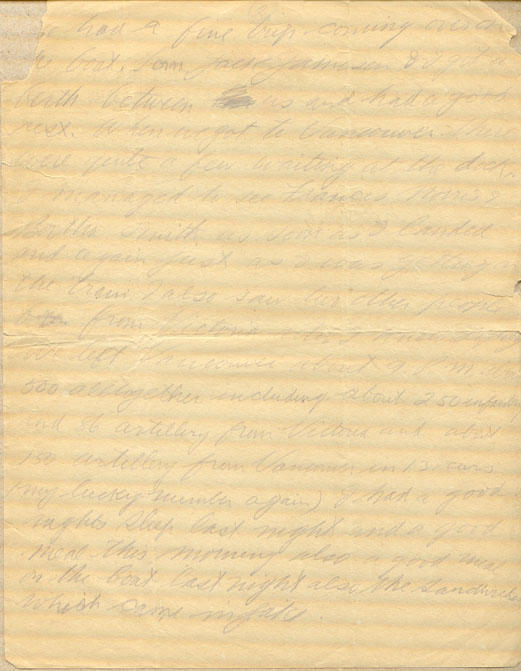 had a fine trip coming over on
the boat. Tom, Jack Jameson & I got a
berth between us and had a good
rest. When we got to Vancouver there
were quite a few waiting at the dock.
I managed to see Frances Norris &
Smith as soon as I landed
and again just as I was getting
the train. I also saw other people
from Victoria
we left Vancouver about 9 P.M.
500 altogether including about 250 infantry
and 86 artillery from Victoria and about
150 artillery from Vancouver in 13 cars
(my lucky number again) I had a good
nights sleep last night and a good
meal this morning also a good meal
on the boat last night also the sandwiches
which came in